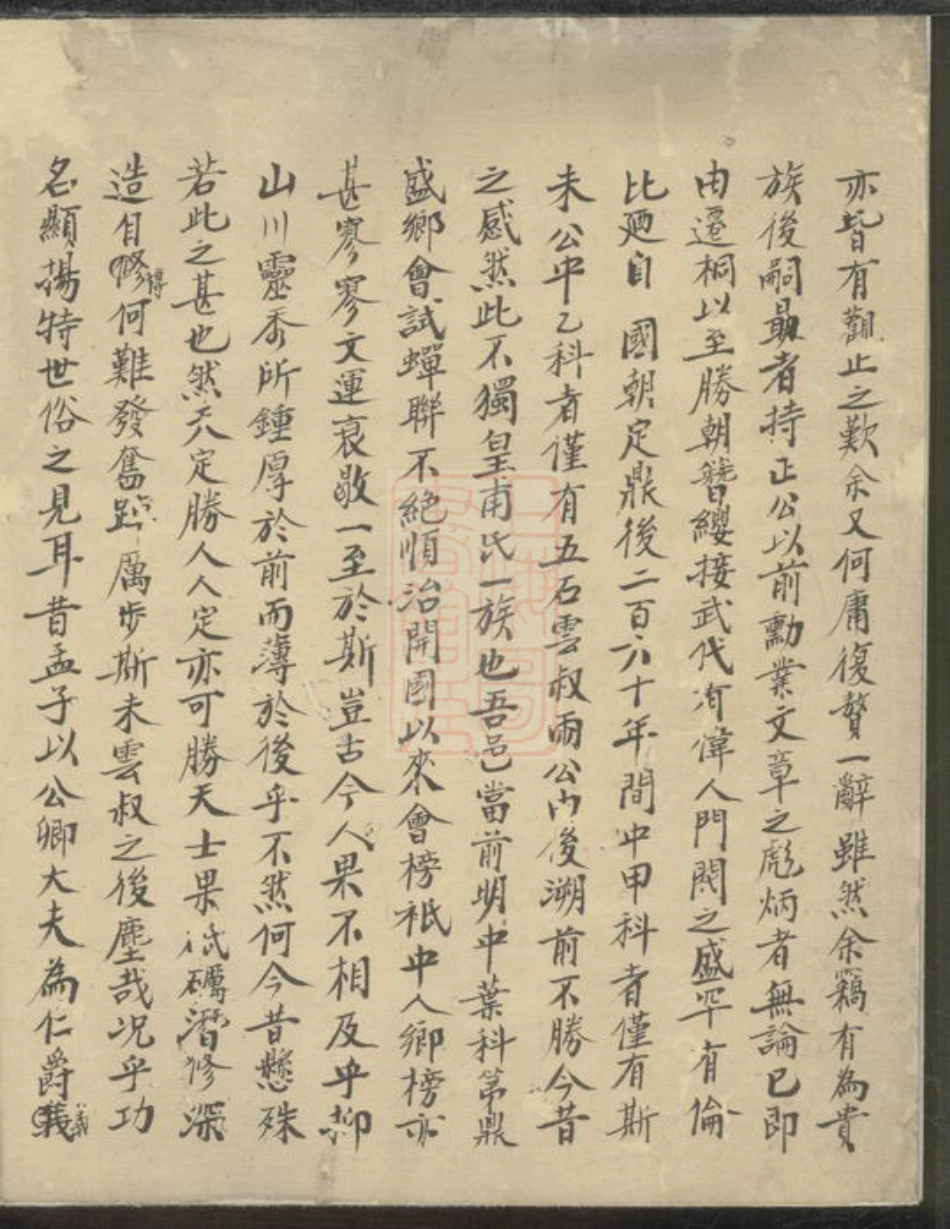 亦皆有觀止之歎余又何庸復贅一辭雖然余竊有為貴
族後嗣勗者持正公以前勳業文章之彪炳者無論已即
由遷桐以至勝朝簪纓接武代有偉人門閥之盛罕有倫
比廼自 國朝定鼎後二百六十年間中甲科者僅有斯
未公中乙科者僅有五石雲叔雨公內後溯前不勝今昔
之感然此不獨皇甫氏一族也吾邑當前明中葉科第鼎
盛鄉會試蟬聯不絕順治開國以來會榜祇中人鄉榜亦
甚寥寥文運衰歇一至於斯豈古今人果不相及乎抑
山川靈秀所鍾厚於前而薄於後乎不然何今昔懸殊
若此之甚也然天定勝人人定亦可勝天士果砥礪潛修深
造自修何難發奮踔厲步斯未雲叔之後塵哉況乎功
名顯揚特世俗之見耳昔孟子以公卿大夫為仁爵義